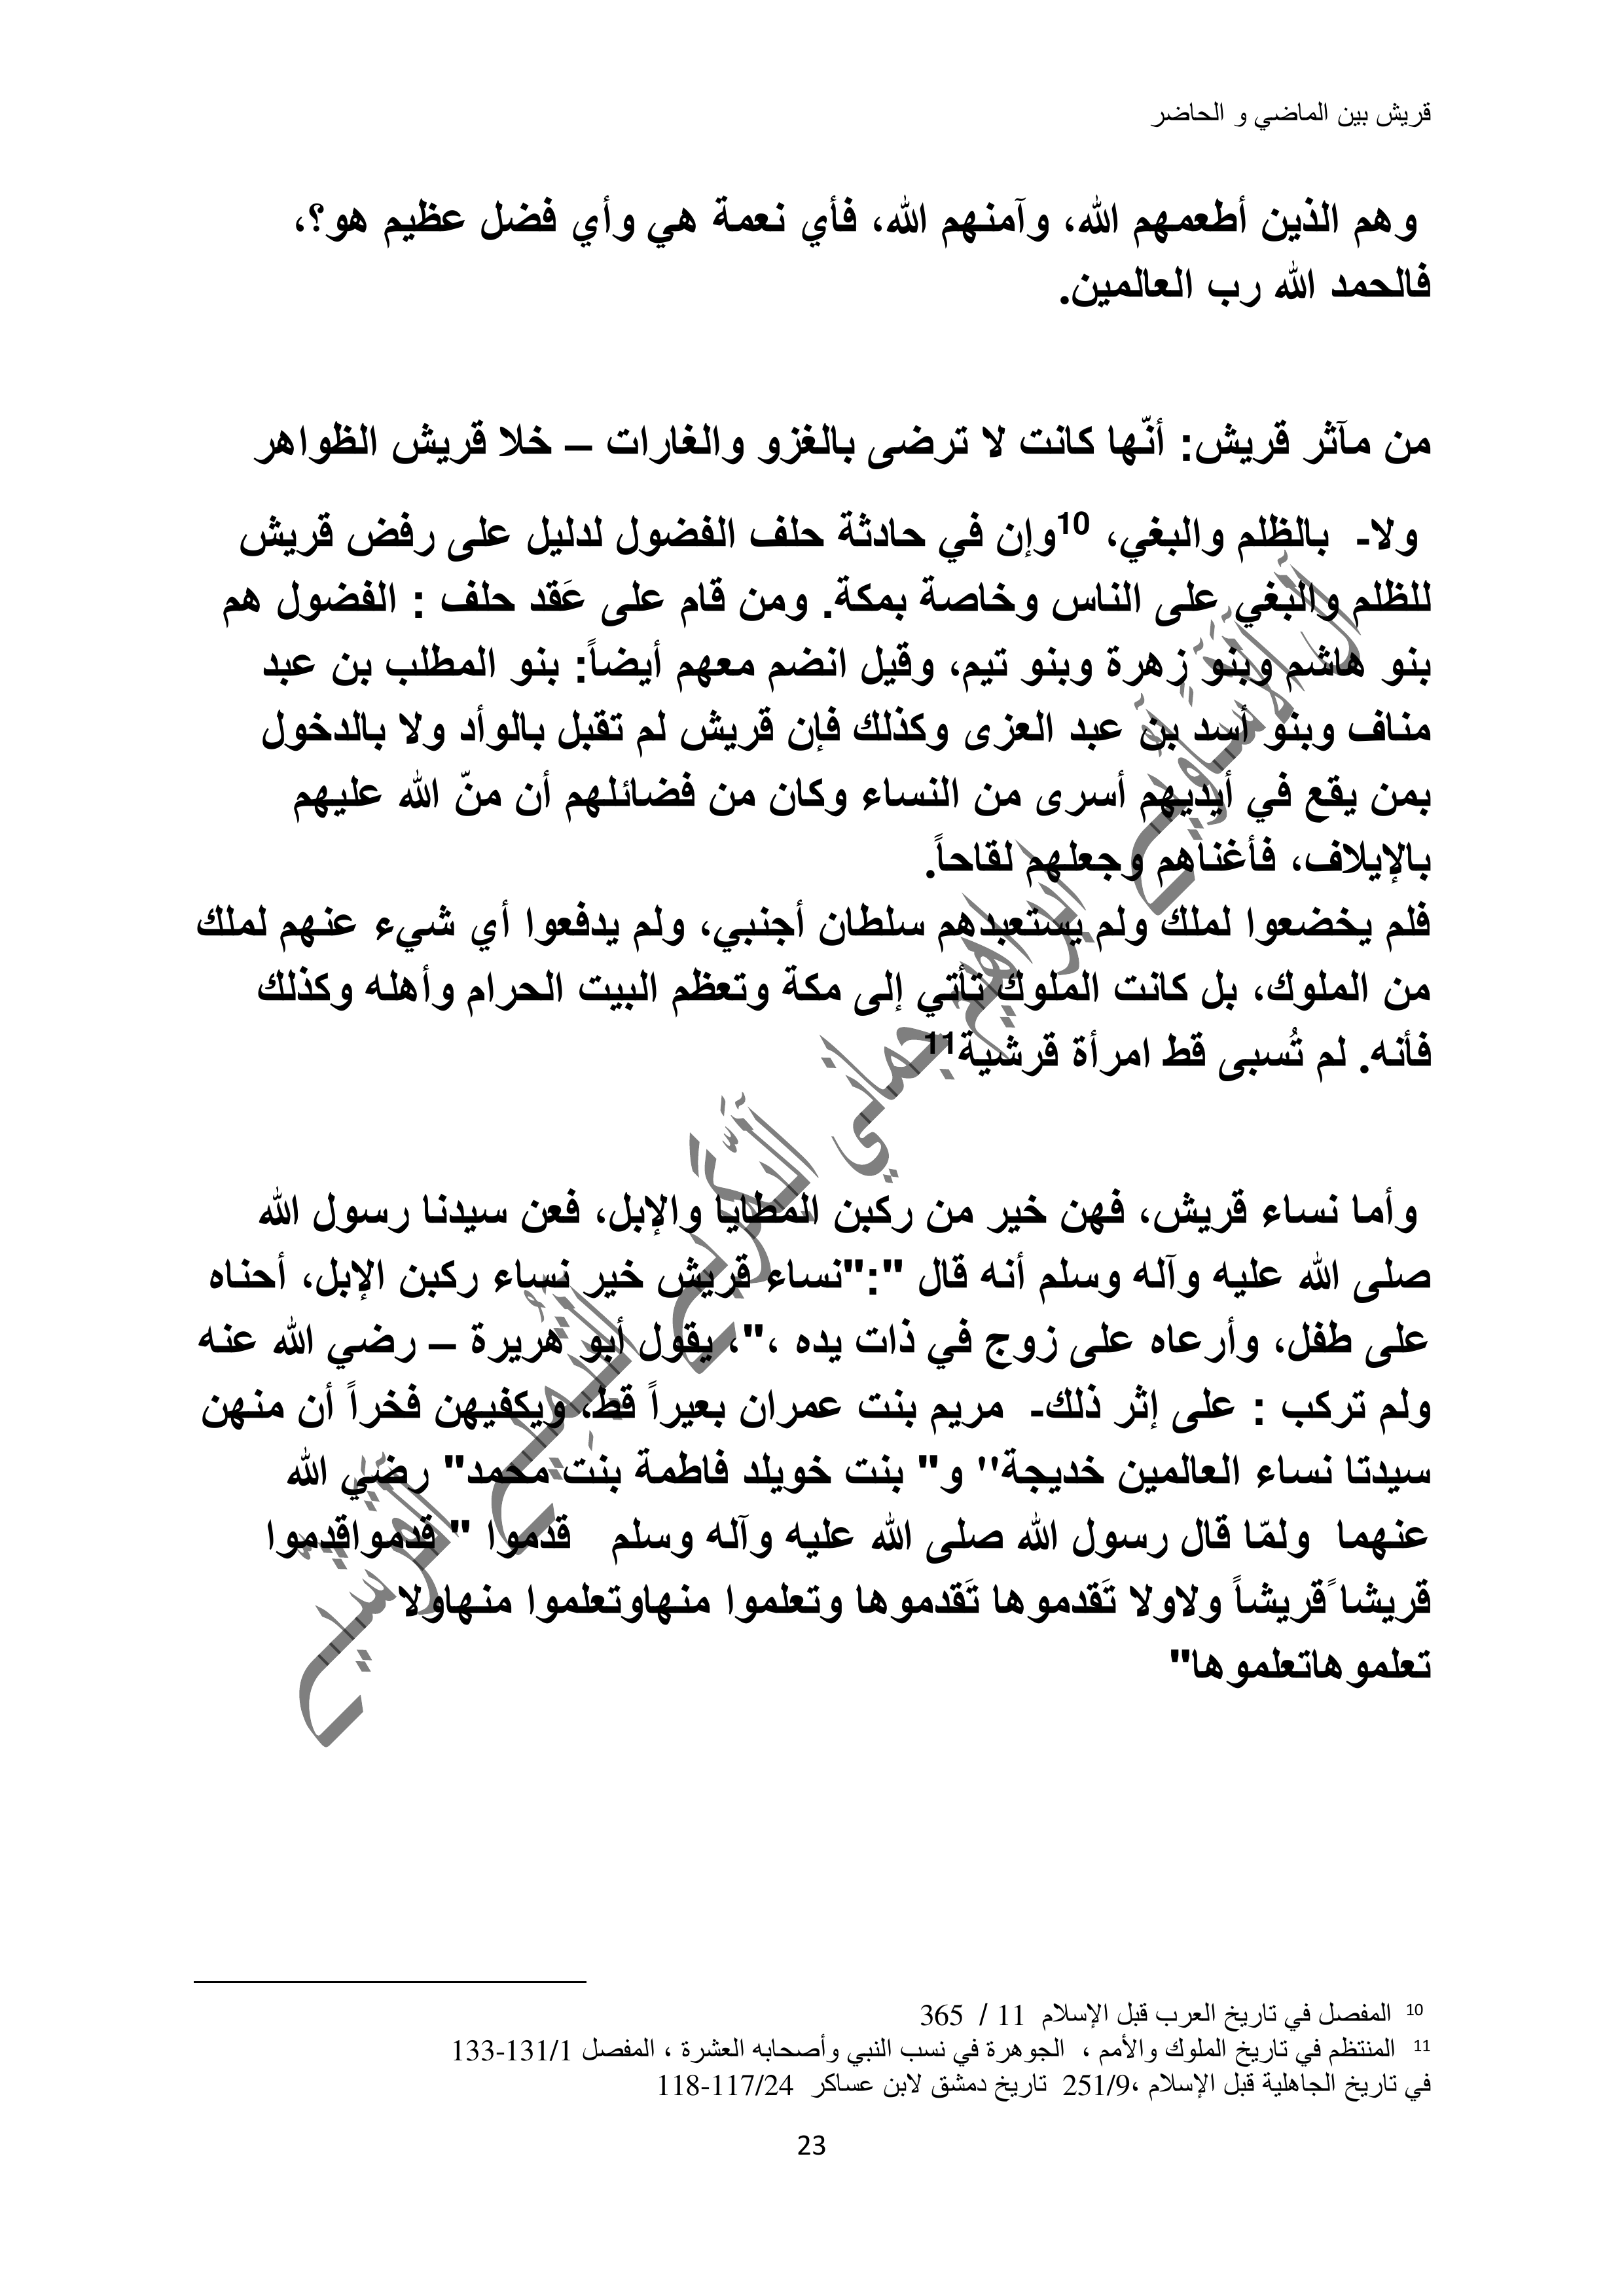 قريش بين الماضي و الحاضر
وهم الذين أطعمهم الله، وآمنهم الله، فأي نعمة هي وأي فضل عظيم هو؟،
فالحمد الله رب العالمين.
من مآثر قريش: أنّها كانت لا ترضى بالغزو والغارات – خلا قريش الظواهر
ولا- بالظلم والبغي، 10وإن في حادثة حلف الفضول لدليل على رفض قريش
للظلم والبغي على الناس وخاصة بمكة. ومن قام على عَقد حلف : الفضول هم
بنو هاشم وبنو زهرة وبنو تيم، وقيل انضم معهم أيضاً: بنو المطلب بن عبد
مناف وبنو أسد بن عبد العزى وكذلك فإن قريش لم تقبل بالوأد ولا بالدخول
بمن يقع في أيديهم أسرى من النساء وكان من فضائلهم أن منّ الله عليهم
بالإيلاف، فأغناهم وجعلهم لقاحاً.
فلم يخضعوا لملك ولم يستعبدهم سلطان أجنبي، ولم يدفعوا أي شيء عنهم لملك
من الملوك، بل كانت الملوك تأتي إلى مكة وتعظم البيت الحرام وأهله وكذلك
فأنه. لم تُسبى قط امرأة قرشية11
وأما نساء قريش، فهن خير من ركبن المطايا والإبل، فعن سيدنا رسول الله
صلى الله عليه وآله وسلم أنه قال ":"نساء قريش خير نساء ركبن الإبل، أحناه
على طفل، وأرعاه على زوج في ذات يده ،"، يقول أبو هريرة – رضي الله عنه
ولم تركب : على إثر ذلك- مريم بنت عمران بعيراً قط، ويكفيهن فخراً أن منهن
سيدتا نساء العالمين خديجة'' و" بنت خويلد فاطمة بنت محمد" رضي الله
عنهما ولمّا قال رسول الله صلى الله عليه وآله وسلم قدموا " قدمواقدموا
قريشا ًقريشاً ولاولا تَقدموها تَقدموها وتعلموا منهاوتعلموا منهاولا
تعلموهاتعلموها"
10 المفصل في تاريخ العرب قبل الإسلام 11 / 365
11 المنتظم في تاريخ الملوك والأمم ، الجوهرة في نسب النبي وأصحابه العشرة ، المفصل 131/1-133
في تاريخ الجاهلية قبل الإسلام ،251/9 تاريخ دمشق لابن عساكر 117/24-118
23